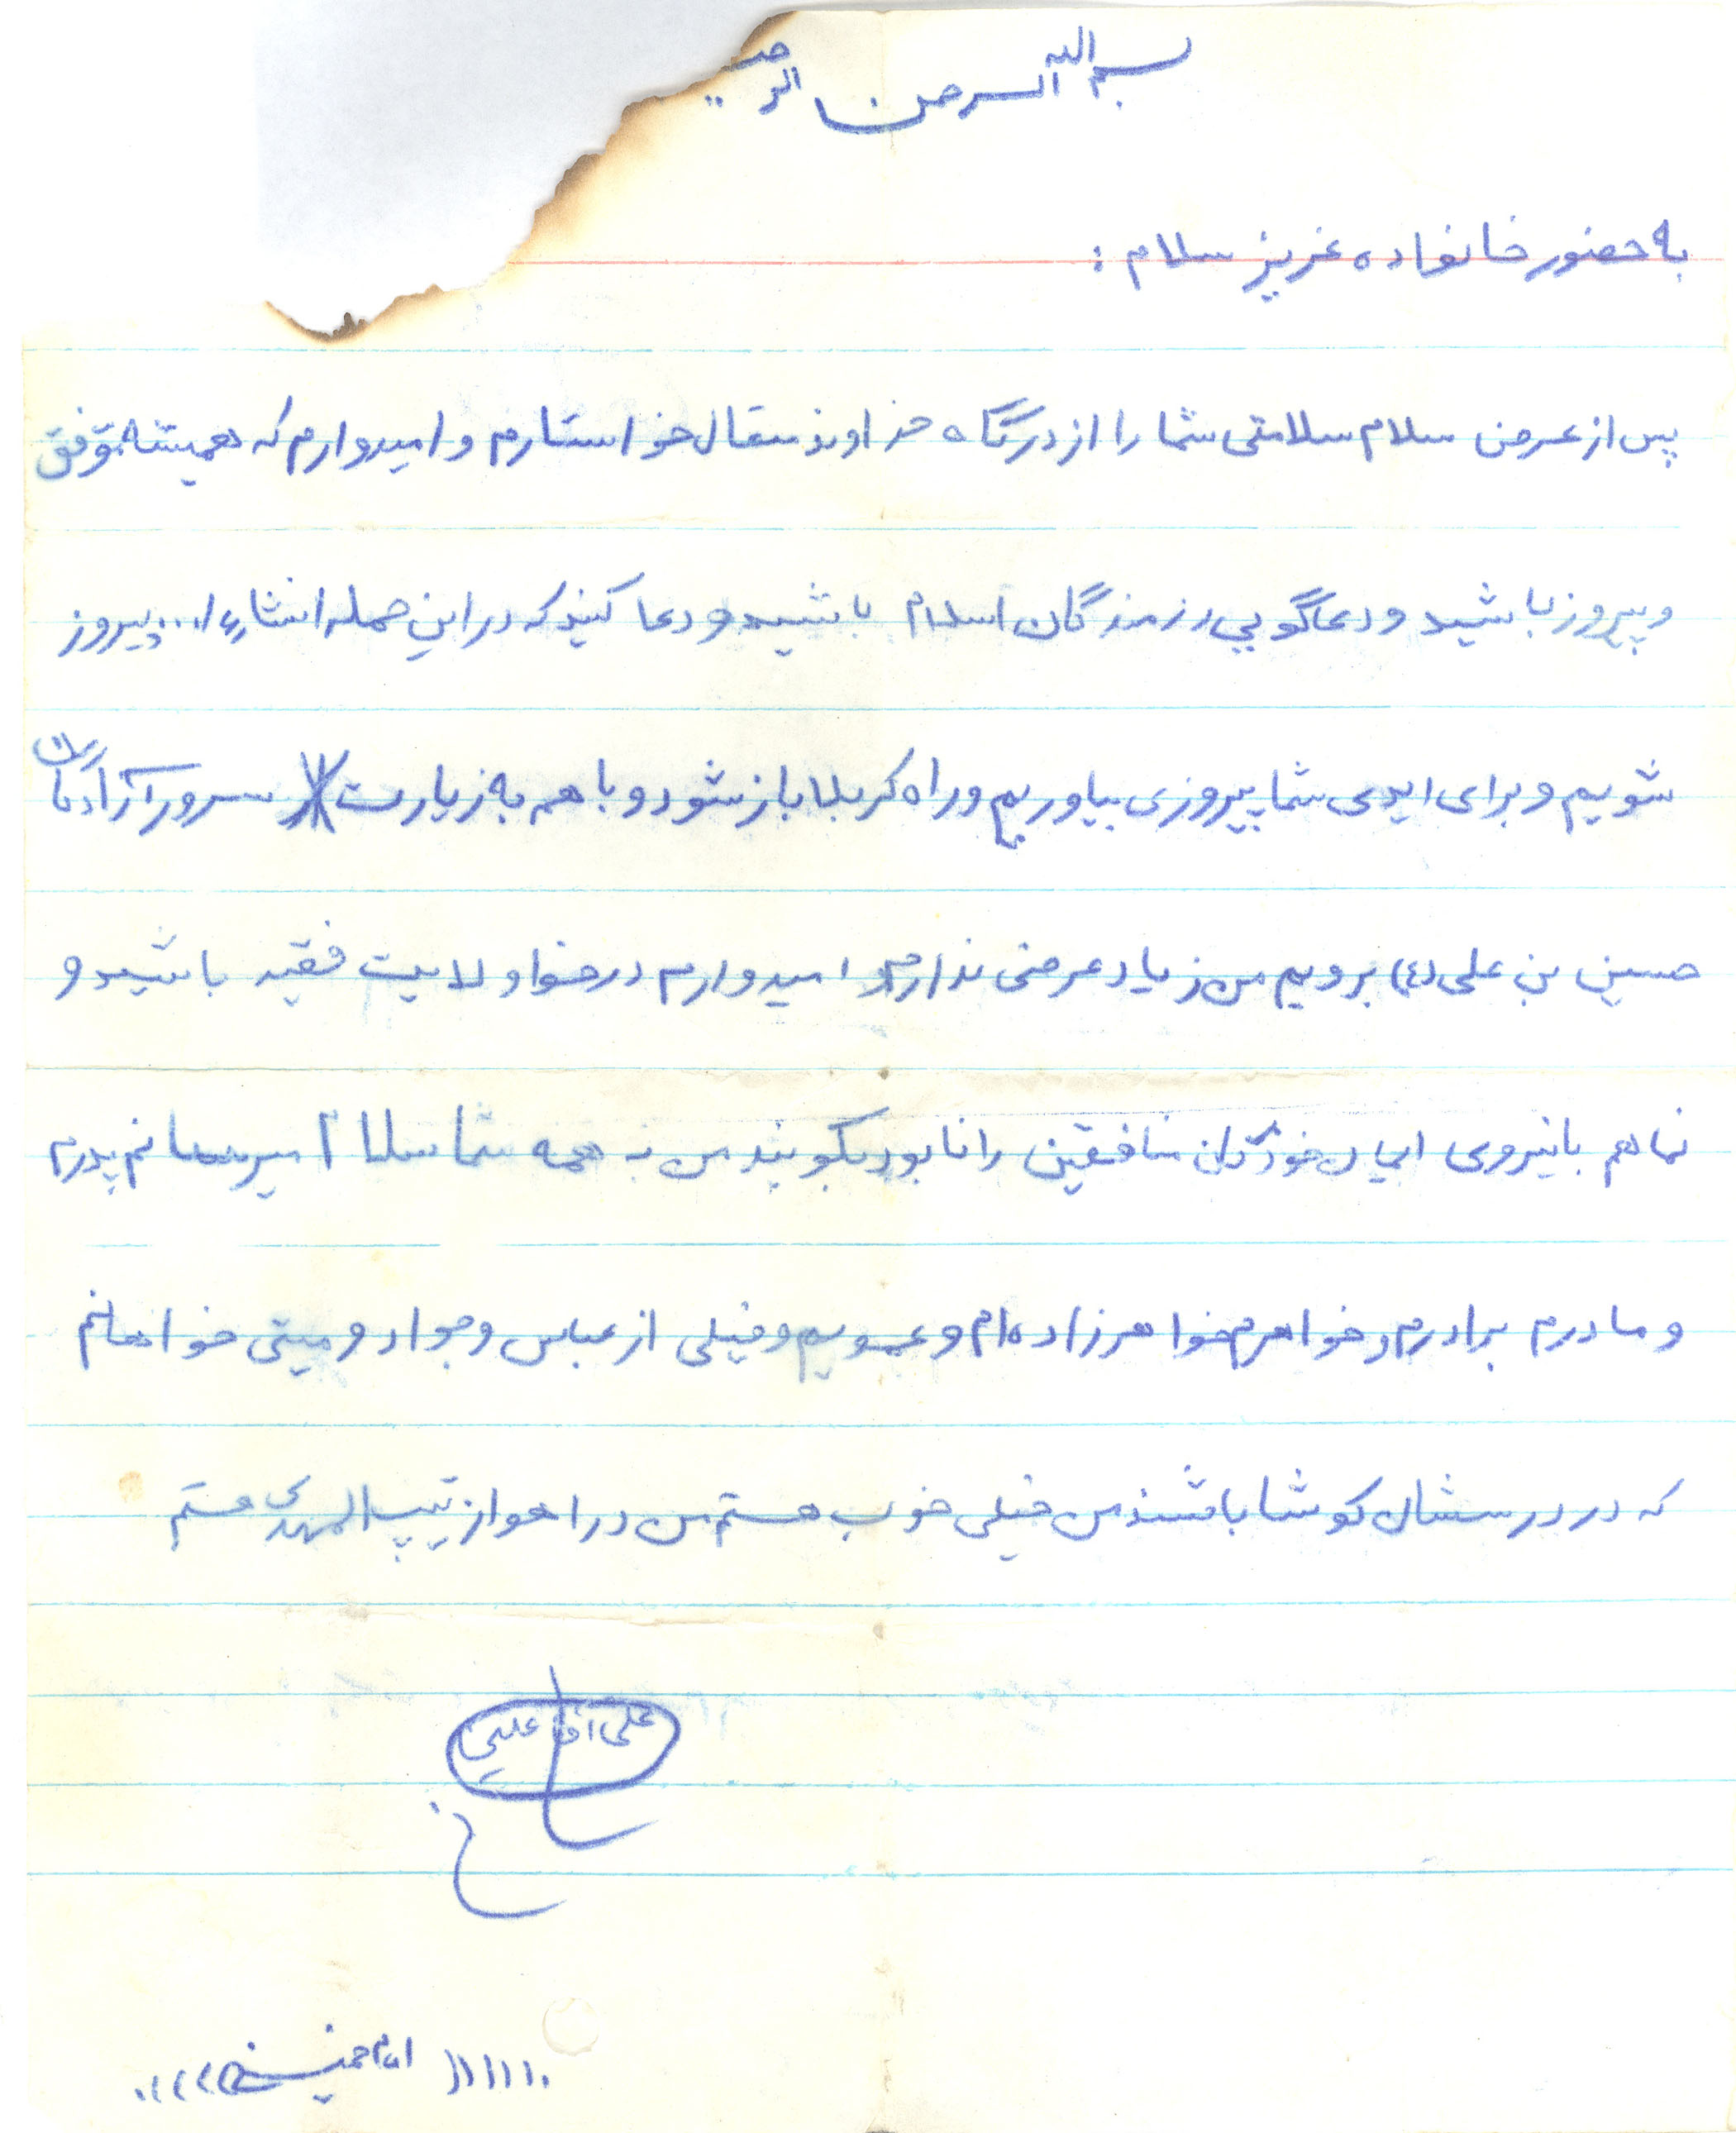 بسم الله الرحمن الرحیـ
به حضور خانواده عزیز سلام :
پس از عرض سلام سلامتی شما را از درگاه خداوند متعال خواستارم و امیدوارم که همیشه موفق
و پیروز باشید و دعاگویی رزمندگان اسلام باشید و دعا کنید که در این حمله انشاءا... پیروز
شویم و برای ایدی شما پیروزی بیاوریم و راه کربلا باز شود و با هم به زیارت سرور آزادگان
حسین بن علی (ع) برویم من زیاد عرضی ندارم امیدوارم در خط ولایت فقیه باشید و
شما هم با نیروی ایمان خودتان منافقین را نابود بکوبید من به همه شما سلام میرسانم پدرم
و مادرم برادرم و خواهرم خواهرزاده‌ام و عمویم و خیلی از عباس و جواد و میتی خواهانم
که در درسشان کوشا باشند من خیلی خوب هستم من در اهواز تیپ المهدی هستم
علی آقا
امام خمینی